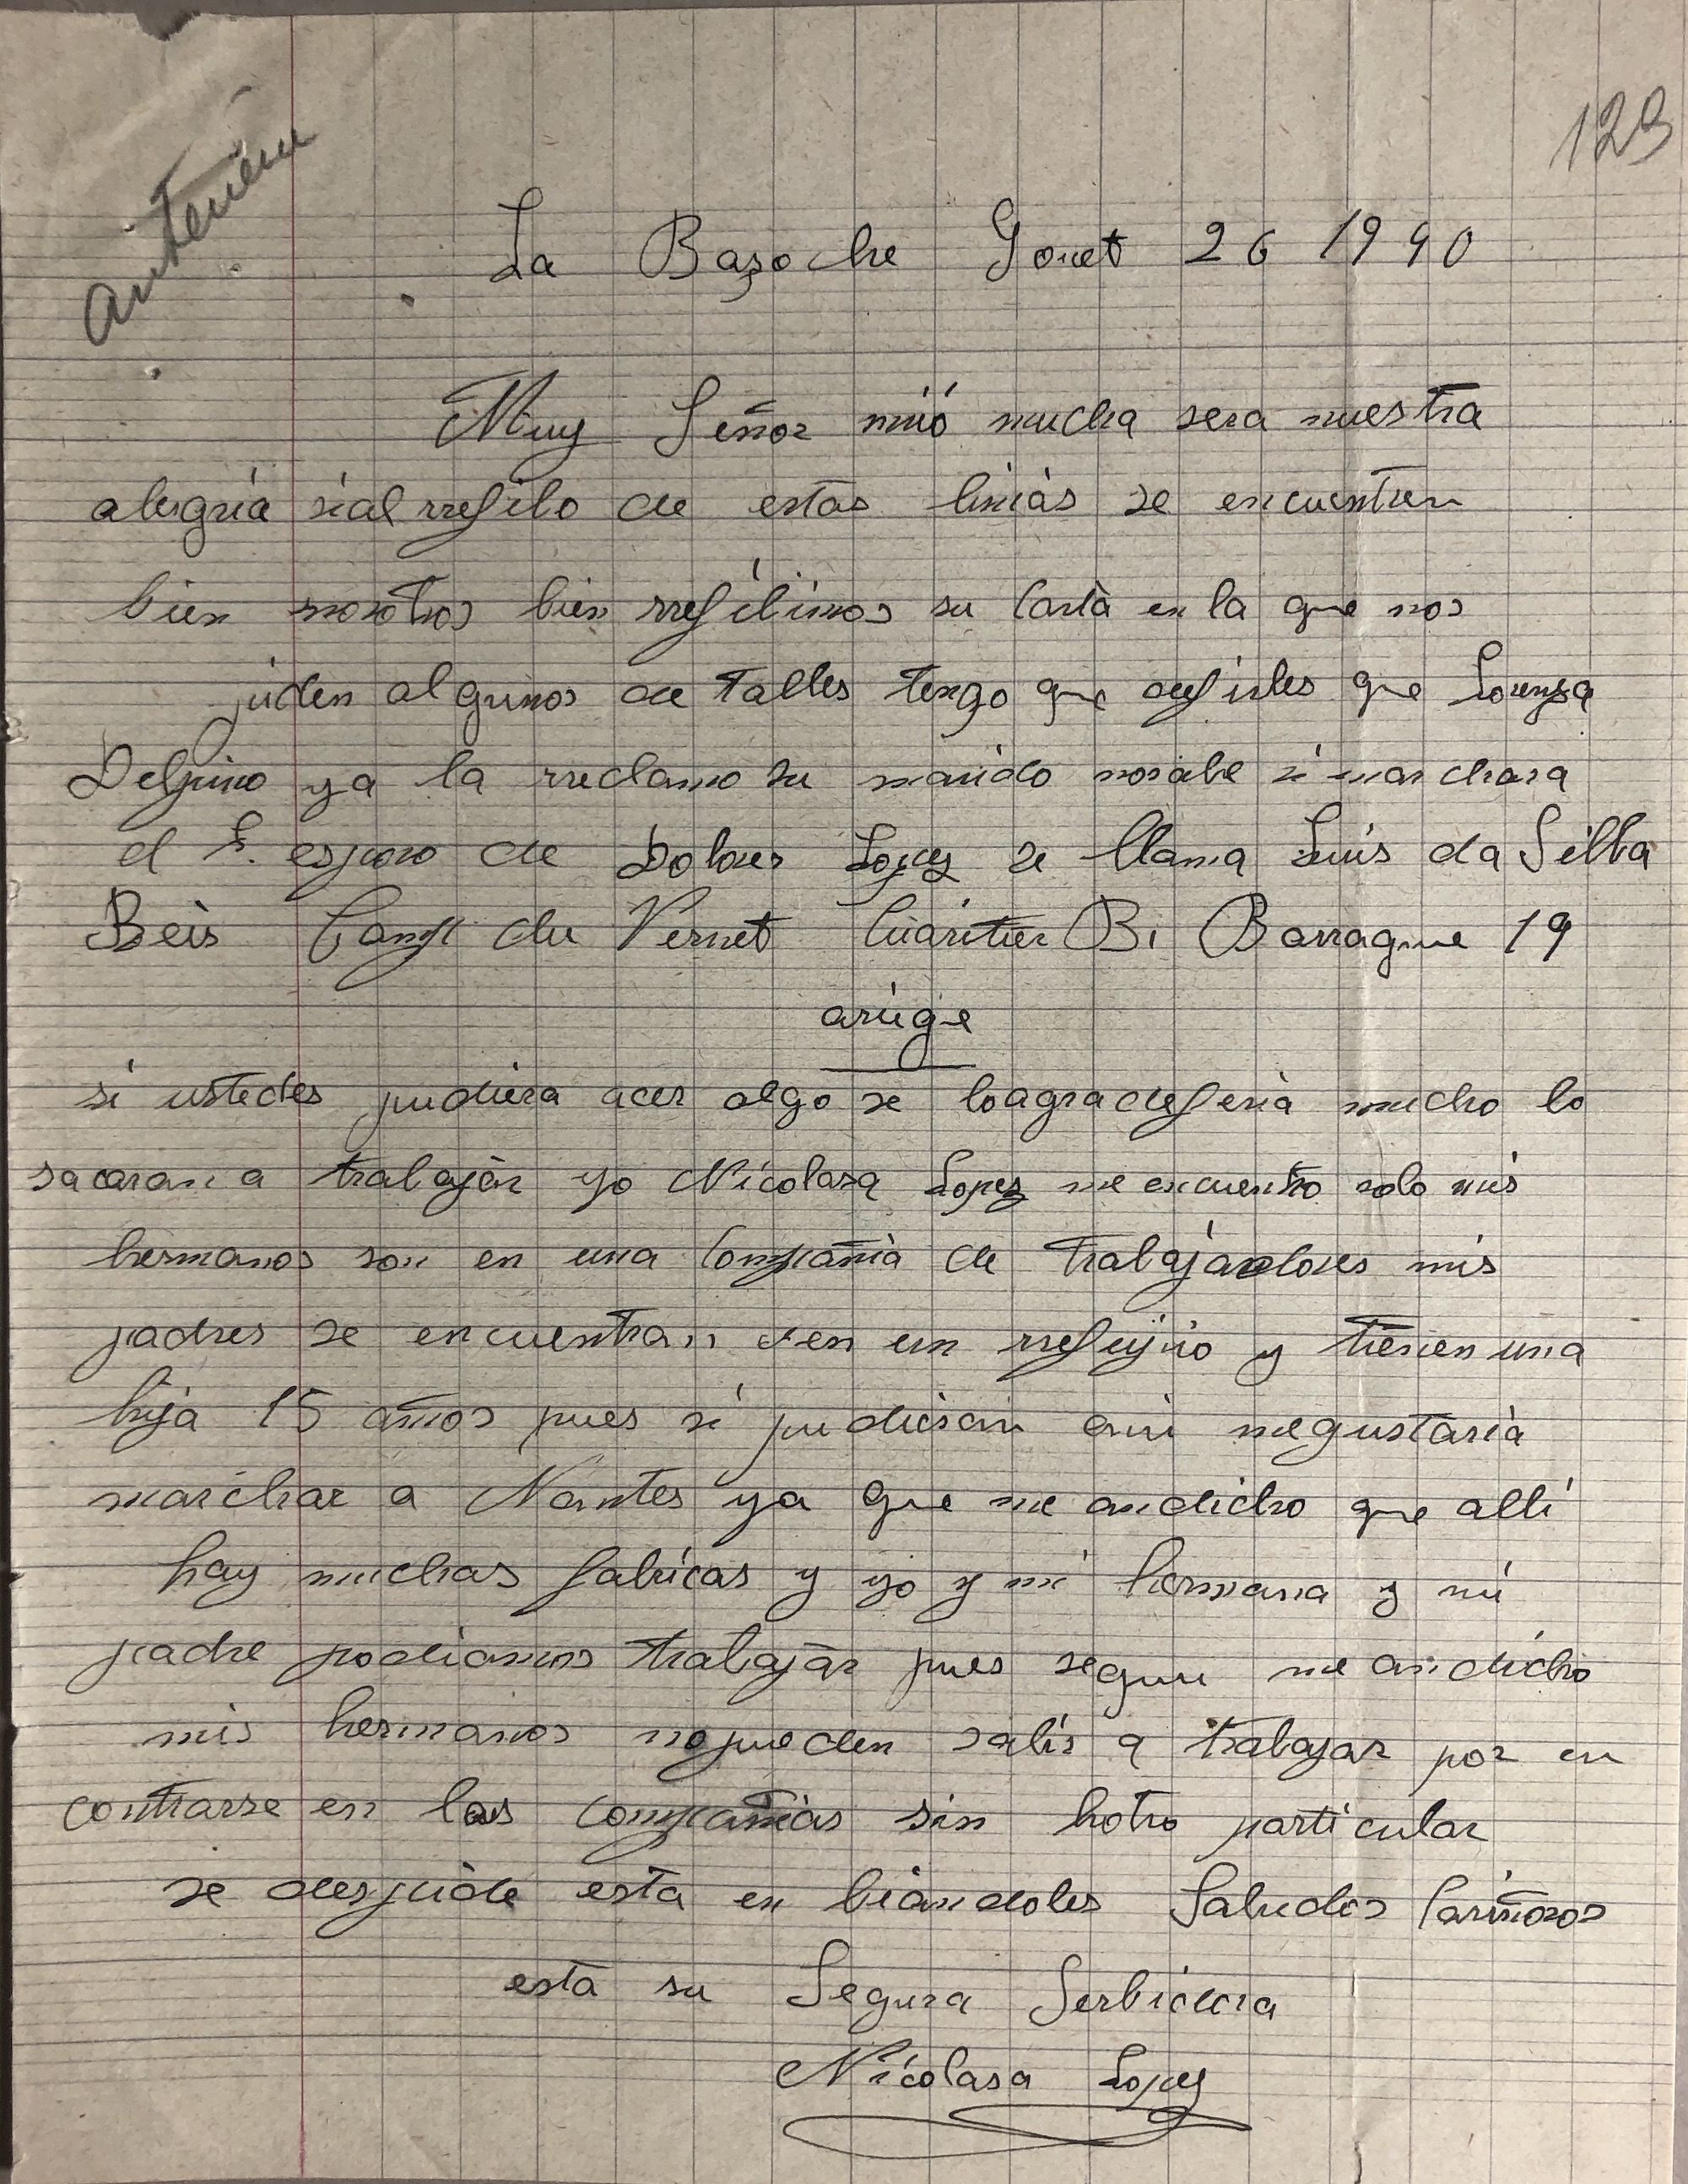 123
La Bazoche Gouet 26 1940
Muy Señor mió mucha sera nuestra
alegria sial rrefibo de estas liniás se encuentren
bien nosotros bien rrefibimos su Carta en la que nos
piden algunos de talles tengo que defirles que Lorenza
Delpino ya la rreclamo su marido nosabe si marchara
el S. esposo de Dolores Lopez se llama Luis da Silba
Beis Camp du Vernet Cuartier B. Barraque 19
ariege
si ustedes pudiera acer algo se loagradeferia mucho lo
sacaran a trabajar yo Nicolasa Lopez me encuentro solo mis
hermanos son en una Compañia de trabajadores mis
padres se encuentran en un rrefujio y tienen una
hija 15 años pues si pudieran ami megustaria
marchar a Nantes ya que me andicho que alli
hay muchas fabricas y yo y mi hermana y mi
padre podiamos trabajar pues segun me an dicho
mis hermanos nopueden salir a trabajar por en
contrarse en las Compañias sin hotro particular
se despide esta en biandoles Saludos Cariñosos
esta su Segura Serbidora
Nicolasa Lopez